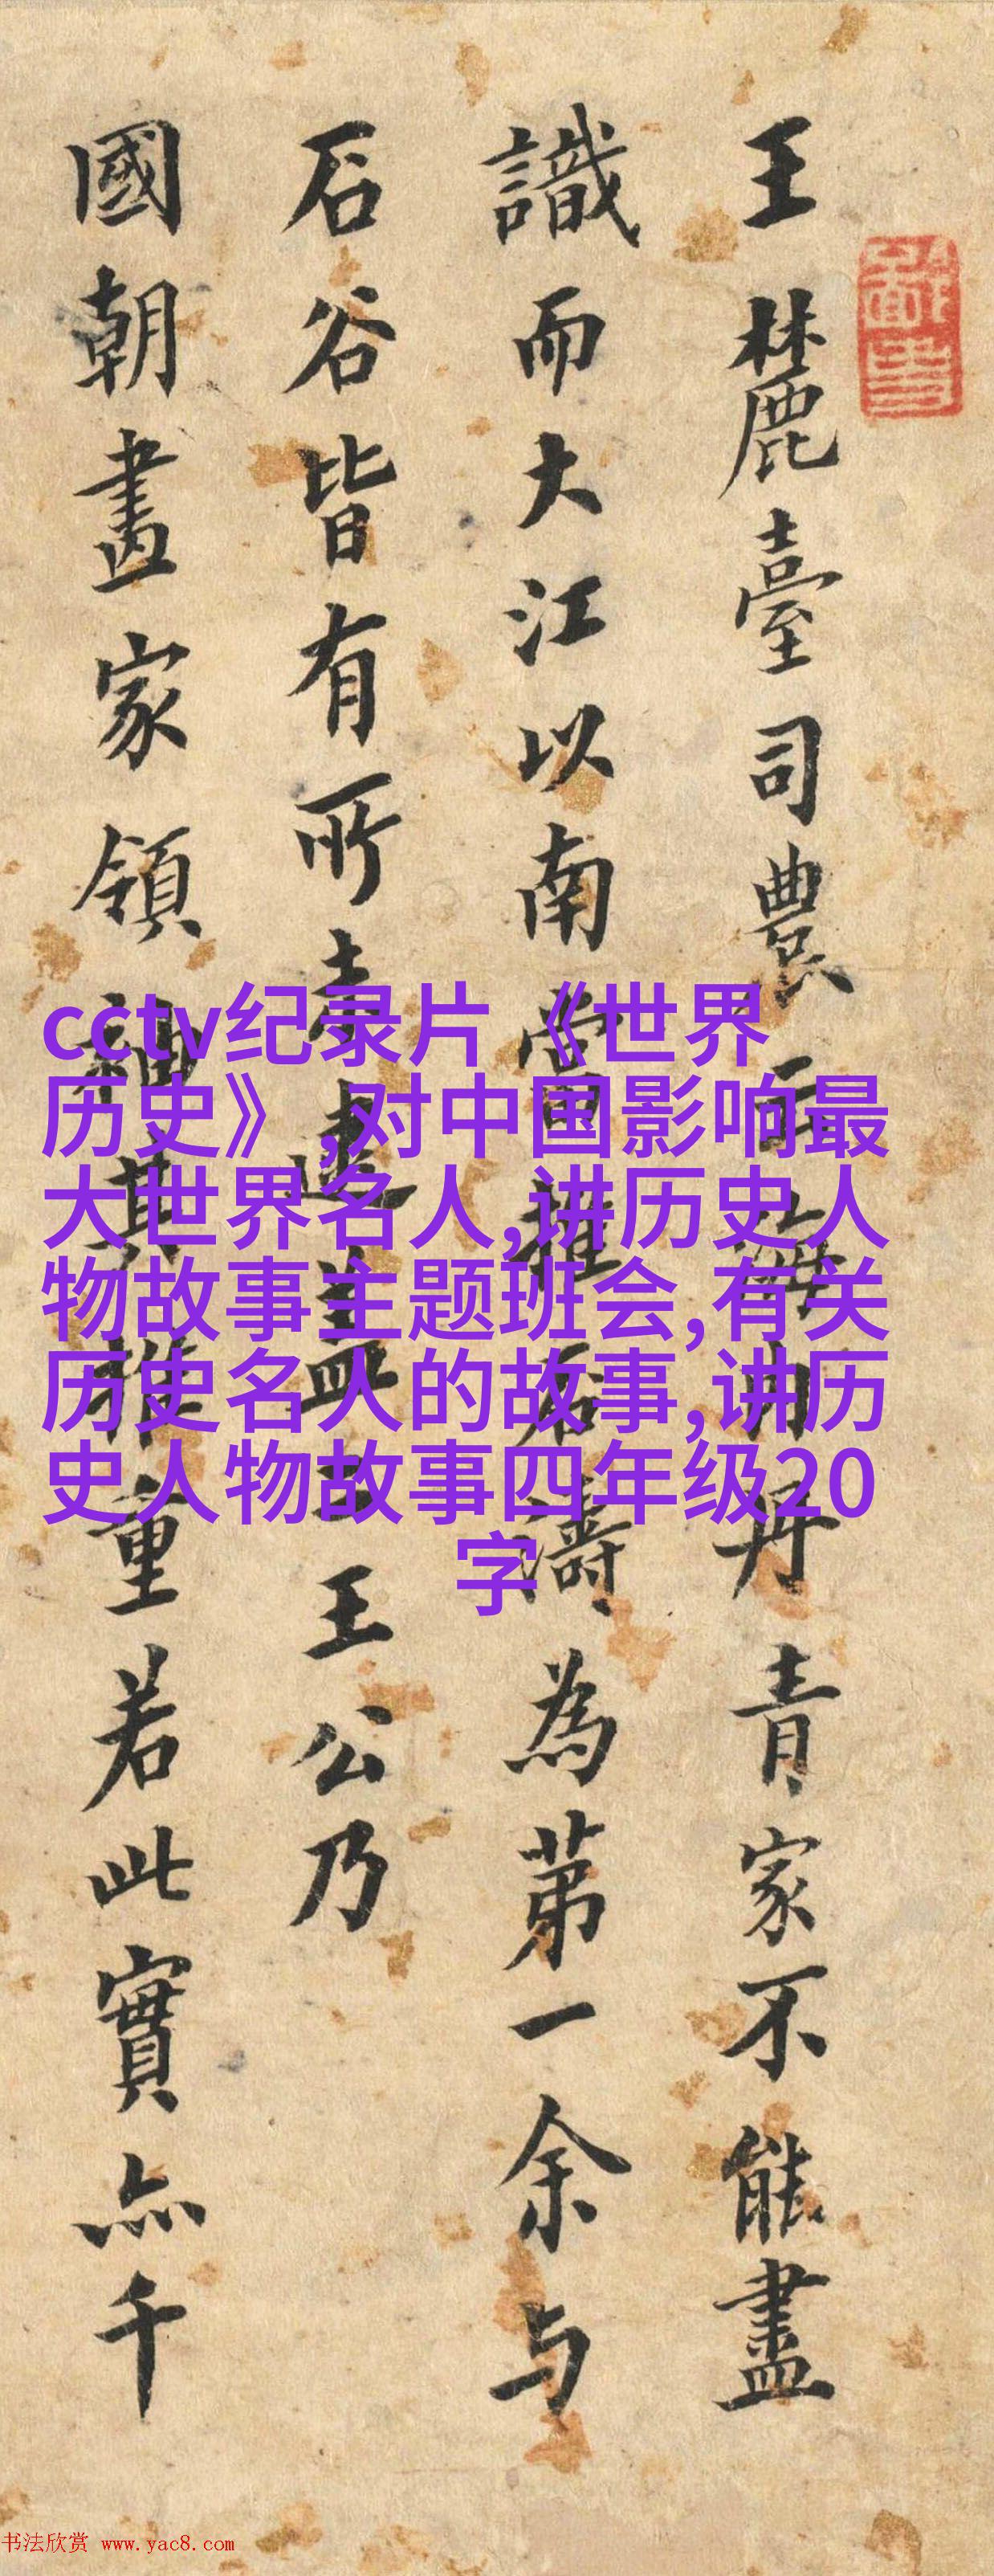 王麓臺司農云海内丹青家不能盡
識而大江以南當推石濤為第一余与
石谷皆有所未逮蓋二王公乃
國朝畫家領袖其推重若此實亦千
cctv纪录片《世界
历史》,对中国影响最
大世界名人,讲历史人
物故事主题班会,有关
历史名人的故事,讲历
史人物故事四年级20
字
书法欣赏 www.yac8.com